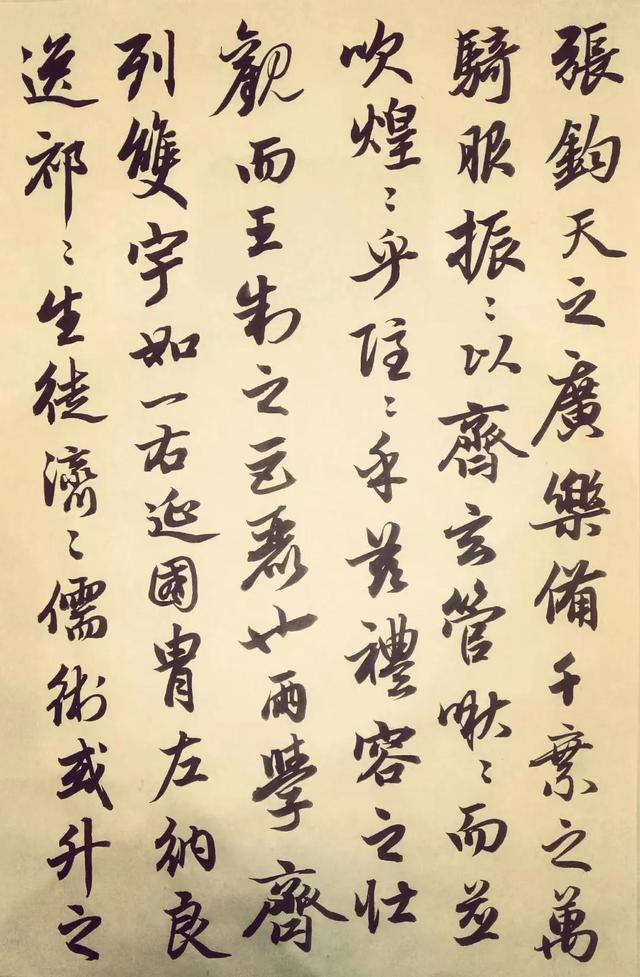 張鈞天之廣樂備千乘之萬
騎服振〻以齊玄管啾〻而並
吹煌〻乎隱〻乎茲禮容之壯
觀而王制之巨麗也兩學齊
列雙宇如一右延國胄左納良
逸祁〻生徒濟〻儒術或升之